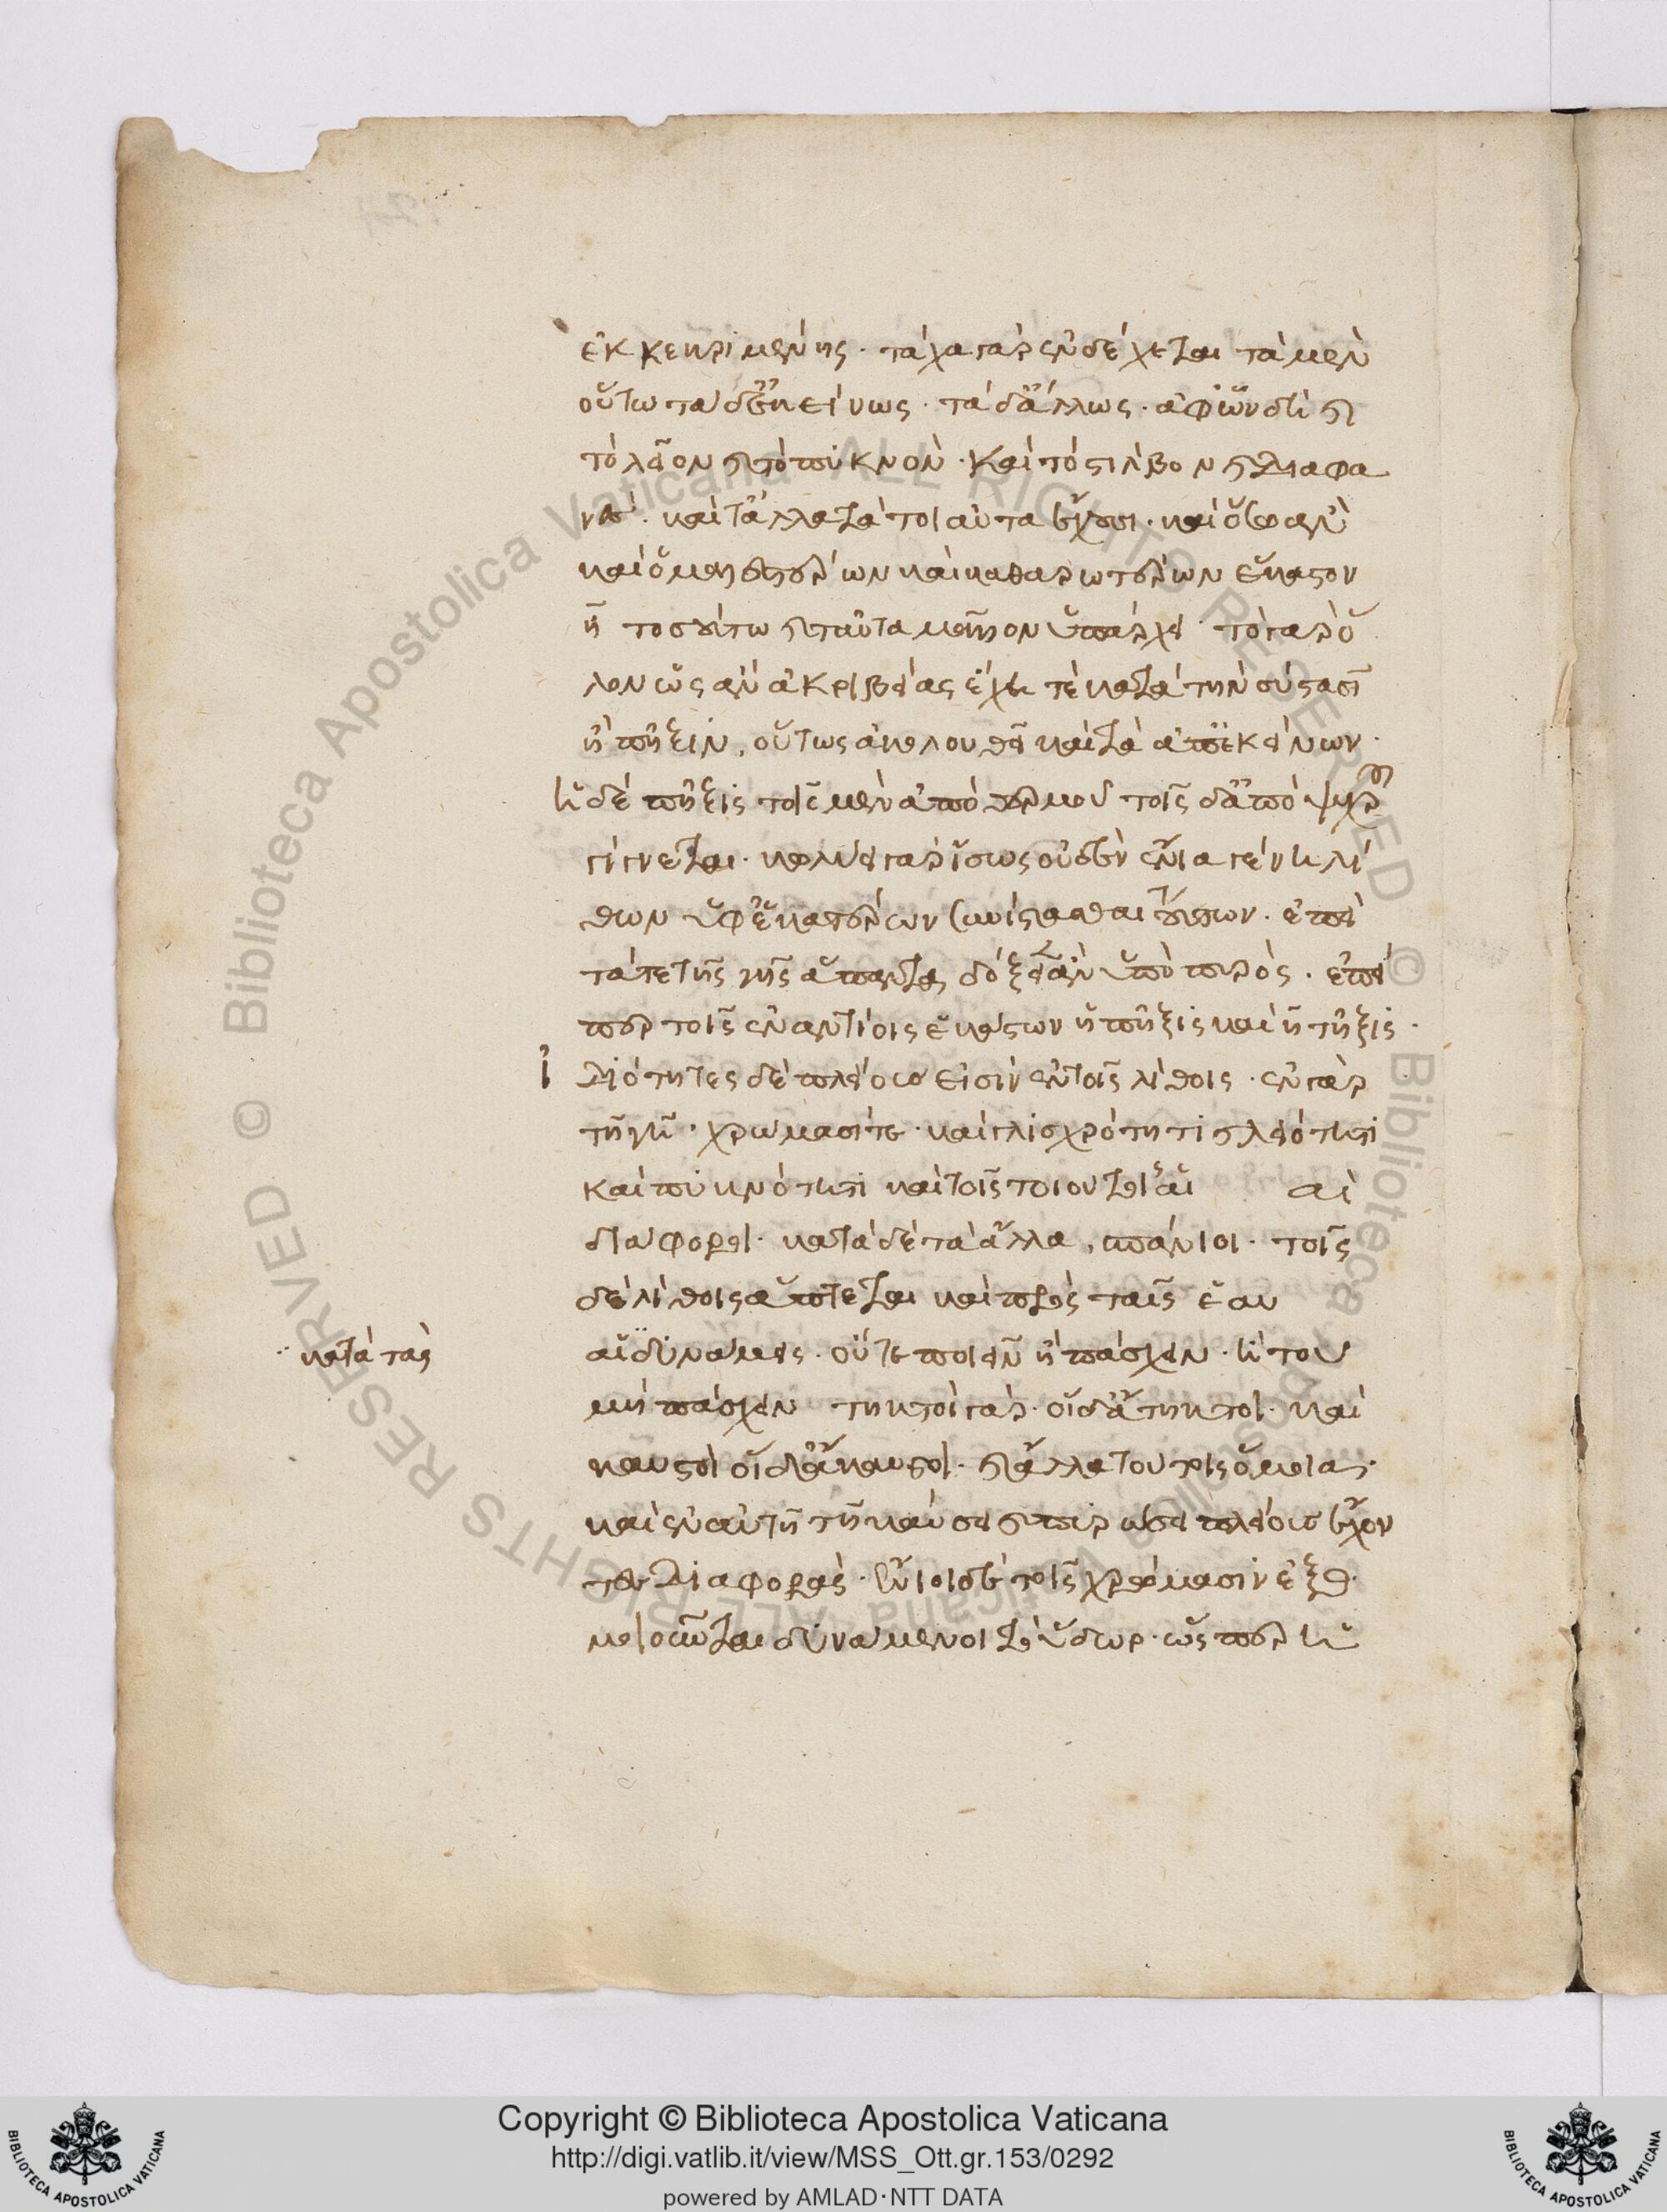 ἐκκεκριμένης· τάχα γὰρ ἐνδέχεται τὰ μὲν
οὕτω τὰ δ' ἐκείνως· τὰ δ' ἄλλως· ἀφ' ὧν δὴ καὶ
τὸ λεῖον καὶ τὸ πυκνὸν· καὶ τὸ στίλβον καὶ διαφα
νὲς· καὶ τἄλλα τὰ τοιαῦτα ἔχουσι· καὶ ὅσω ἂν
καὶ ὁμαλεστέρων καὶ καθαρωτέρων ἕκαστον
ἦ τοσούτω καὶ ταῦτα μᾶλλον ὑπάρχει· τὸ γὰρ ὅ
λον ὡς ἂν ἀκριβείας ἔχη τὲ κατὰ τὴν σύστασιν
ἢ πῆξιν, οὕτως ἀκολουθεῖ καὶ τὰ ἀπ' ἐκείνων·
ἡ δὲ πῆξις τοῖς μὲν ἀπὸ θερμοῦ τοῖς δ' ἀπὸ ψυχροῦ
γίγνεται· κωλύει γὰρ ἴσως οὐδὲν ἔνια γένη λί
θων ὑφ' ἑκατέρων συνίστασθαι τούτων· ἐπεὶ
τά γε τῆς γῆς ἅπαντα δόξειεν ἂν ὑπὸ πυρός· ἐπεί
περ τοῖς ἐναντίοις ἑκάστων ἡ πῆξις καὶ ἡ τῆξις·
ἰ διότητες δὲ πλείους εἰσὶν ἐν τοῖς λίθοις· ἐν γὰρ
τῆ γῆ· χρώμασί τε· καὶ γλισχρότητι καὶ λειότητι
καὶ πυκνότητι καὶ τοῖς τοιούτοις αἱ αἱ
διαφοραὶ· κατὰ δὲ τὰ ἄλλα, σπάνιοι· τοῖς
δὲ λίθοις αὗταί τε καὶ πρὸς ταῖς ἐαυ
κατὰ τὰς
αἱ δυνάμεις· οὔτε ποιεῖν ἢ πάσχειν· ἢ τοῦ
μὴ πάσχειν τηκτοὶ γὰρ· οἱ δ' ἄτηκτοι· καὶ
καυστοὶ οἱ δ' ἄκαυστοι· καὶ ἄλλα τούτοις ὅμοια·
καὶ ἐν αὐτῆ τῆ καύσει καὶ πυρώσει πλείους ἔχον
τες διαφοράς· ἔνιοι δὲ τοῖς χρώμασιν ἐξο
μοιοῦται δυνάμενοι τὸ ὕδωρ· ὥσπερ ἡ